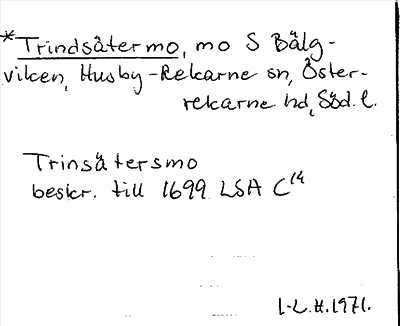 *Trindsätermo, mo S Bälg-
viken, Husby-Rekarne sn, Öster-
rekarne hd, Söd. l.
Trinsätersmo
beskr. till 1699 LSA C14
I-L.H.1971.